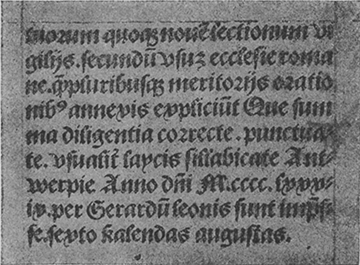 tuorum quoqȝ nouē lectionum vi
gilijs. secundū vsuȝ ecclesie roma
ne. q̄ȝpluribusqȝ meritorijs oratio
nibꝰ annexis expliciūt Que sum
ma diligentia correcte. punctua-
te. vsualit̄ laycis sillabicate Ant-
werpie Anno dn̄i M.cccc. lxxx-
ix. per Gerardū leonis sunt imp̄s-
se. sexto kalendas augustas.